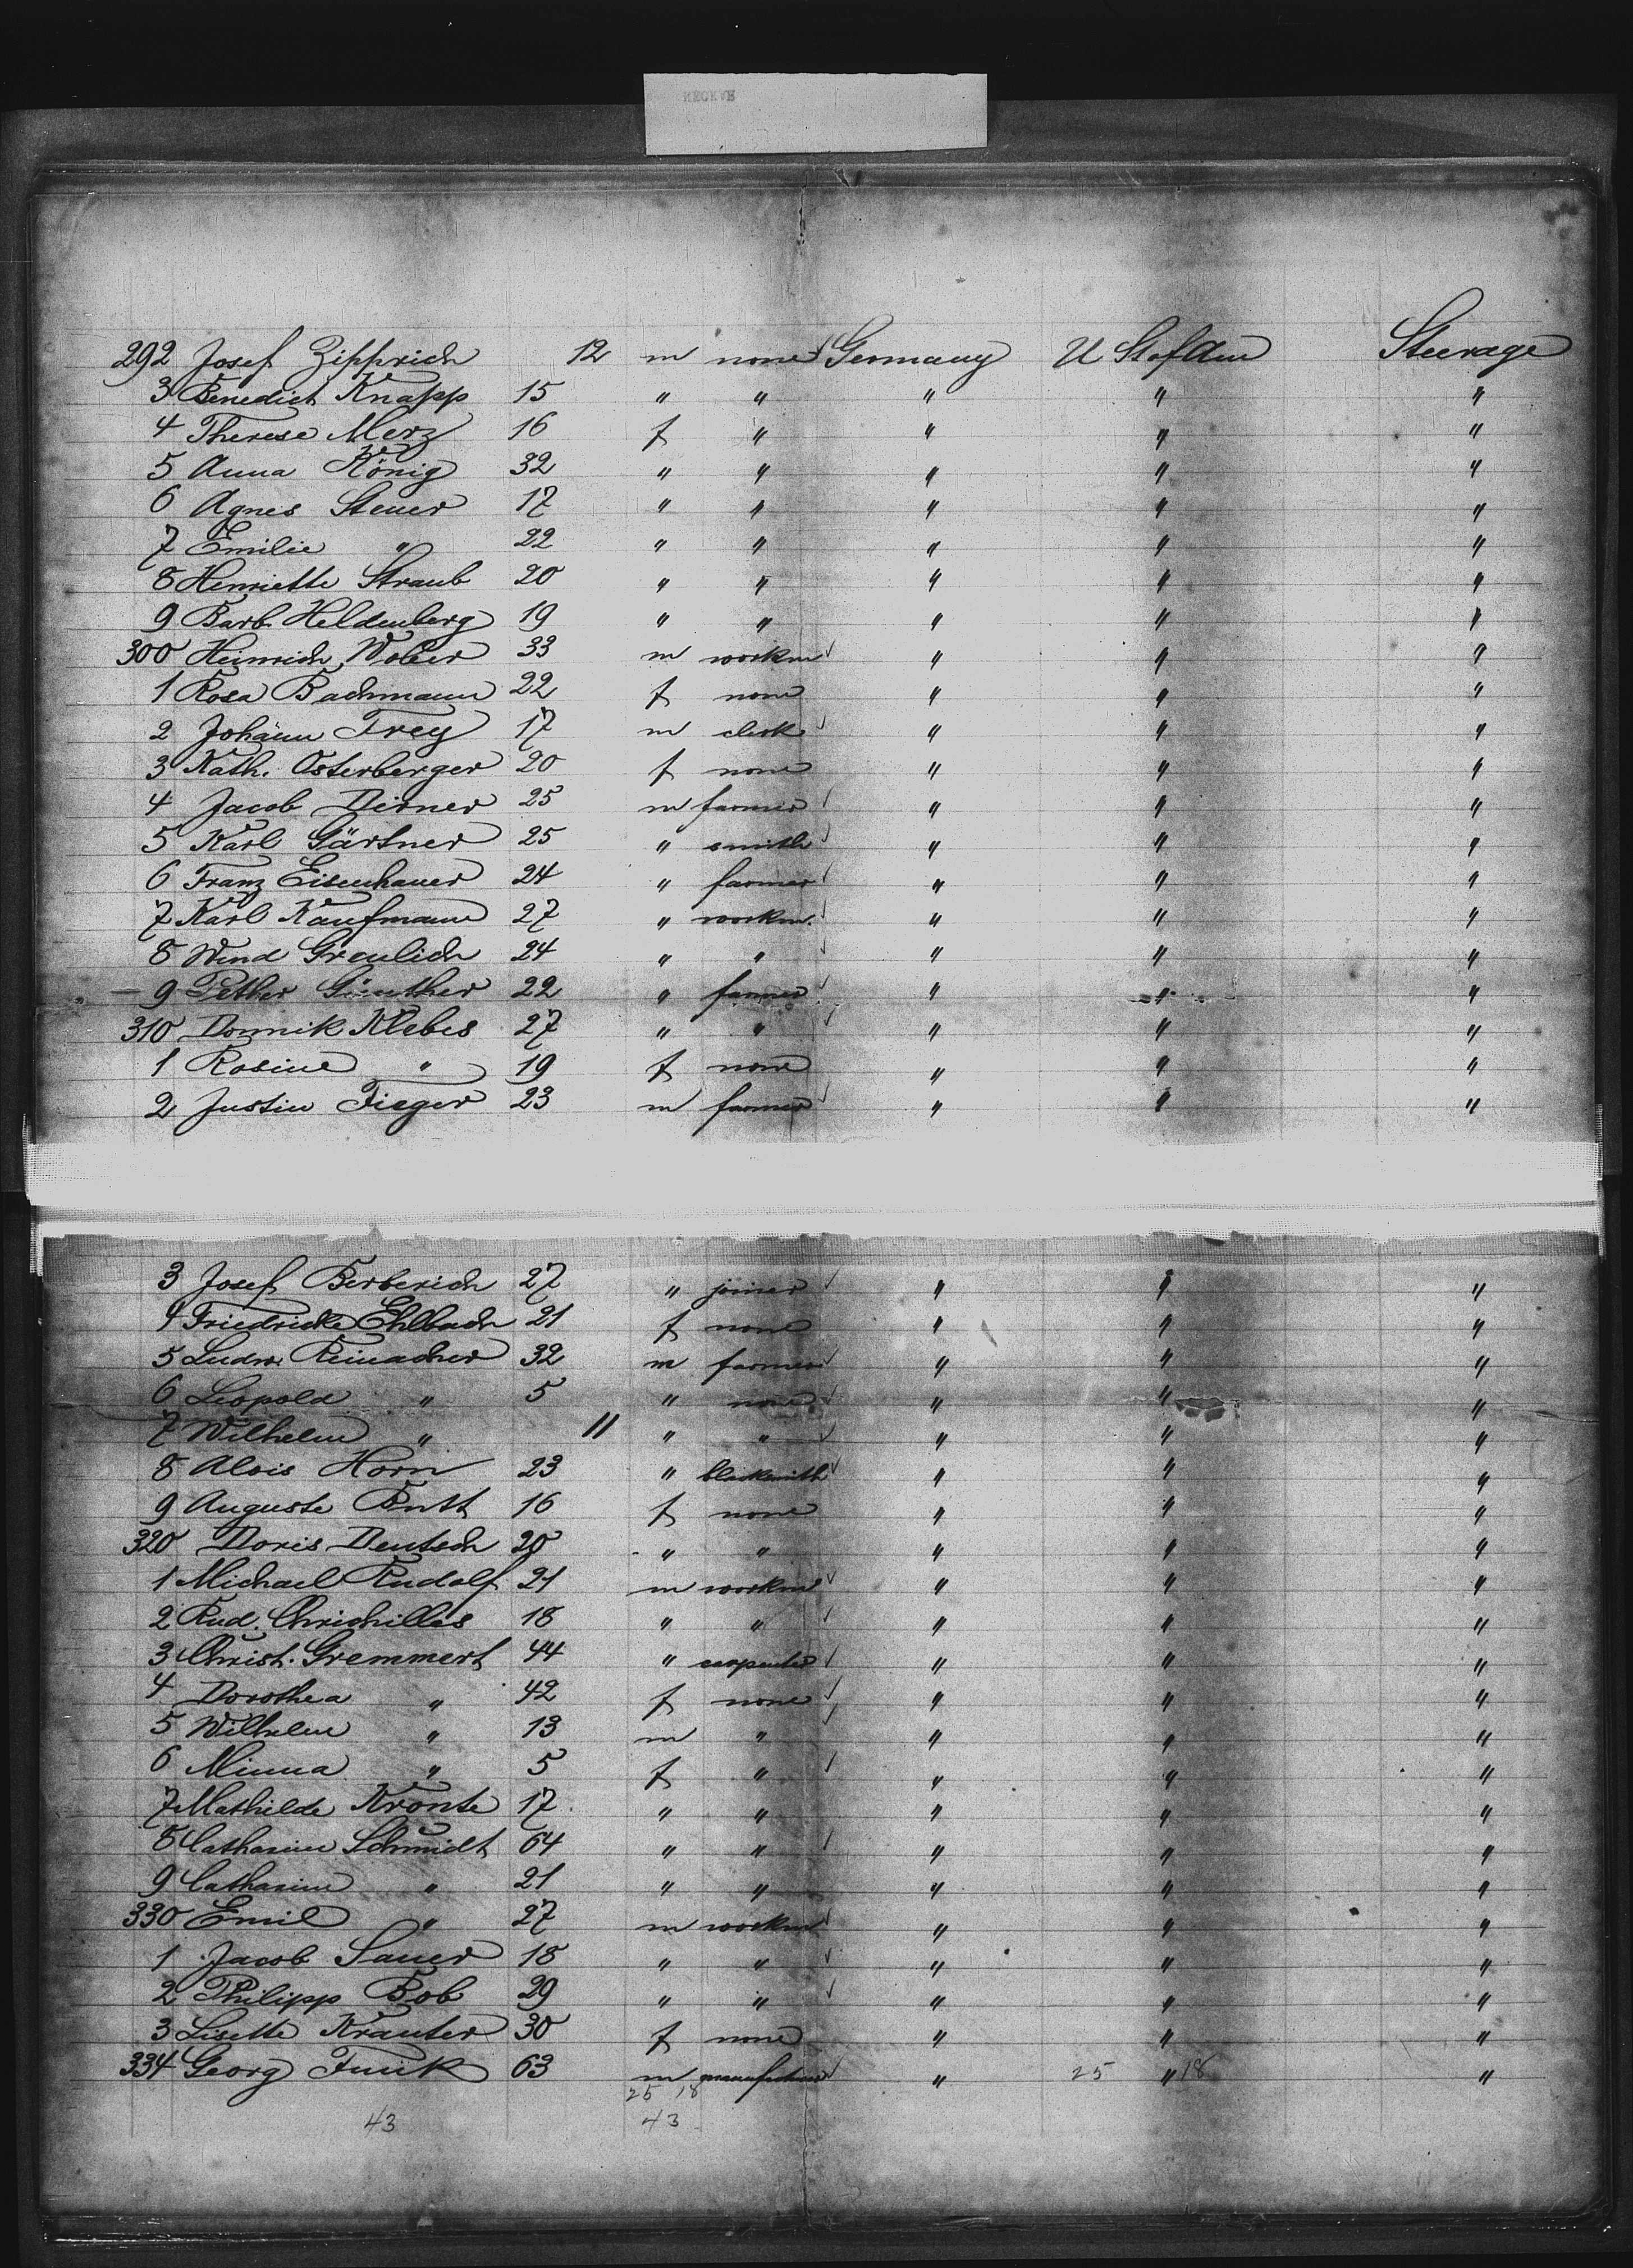 292 Josef Zipprich 12 m none Germany U St of Am Steerage
3 Benedict Knapp 15 " " " " "
4 Therese Merz 16 f " " " "
5 Anna König 32 " " " " "
6 Agnes Steuer 17 " " " " "
7 Emilie " 22 " " " " "
8 Henriette Straub 20 " " " " "
9 Barb. Heldenberg 19 " " " " "
300 Heinrich Weber 33 m workm " " "
1 Rosa Bachmann 22 f none " " "
2 Johann Frey 17 m clerk " " "
3 Kath. Osterberger 20 f none " " "
4 Jacob Dirner 25 m farmer " " "
5 Karl Gärtner 25 " smith " " "
6 Franz Eisenhauer 24 " farmer " " "
7 Karl Kaufmann 27 " workm. " " "
8 Wend Greulich 24 " " " " "
9 Pether Günther 22 " farmer " " "
310 Domnik Klebes 27 " " " " "
1 Rosine " 19 f none " " "
2 Justin Fieger 23 m farmer " " "
3 Josef Berberich 27 " joiner " " "
4 Friedricke Ehlbach 21 f none " " "
5 Ludw. Reinacher 32 m farmer " " "
6 Leopold " 5 " none " " "
7 Wilhelm " 11 " " " " "
8 Alois Horn 23 " blacksmith " " "
9 Auguste Butt 16 f none " " "
320 Doris Deutsch 20 " " " " "
1 Michael Rudolf 21 m workm " " "
2 Rud. Chrichilles 18 " " " " "
3 Christ. Gremmert 44 " carpenter " " "
4 Dorothea " 42 f none " " "
5 Wilhelm " 13 m " " " "
6 Minna " 5 f " " " "
7 Mathilde Kronte 17 " " " " "
8 Catharine Schmidt 64 " " " " "
9 Catharine " 21 " " " " "
330 Emil " 27 m workm " " "
1 Jacob Sauer 18 " " " " "
2 Philipp Bob 29 " " " " "
3 Lisette Krauter 30 f none " " "
334 Georg Funk 63 m manufacturer " 25 " 18 "
25 18
43 43